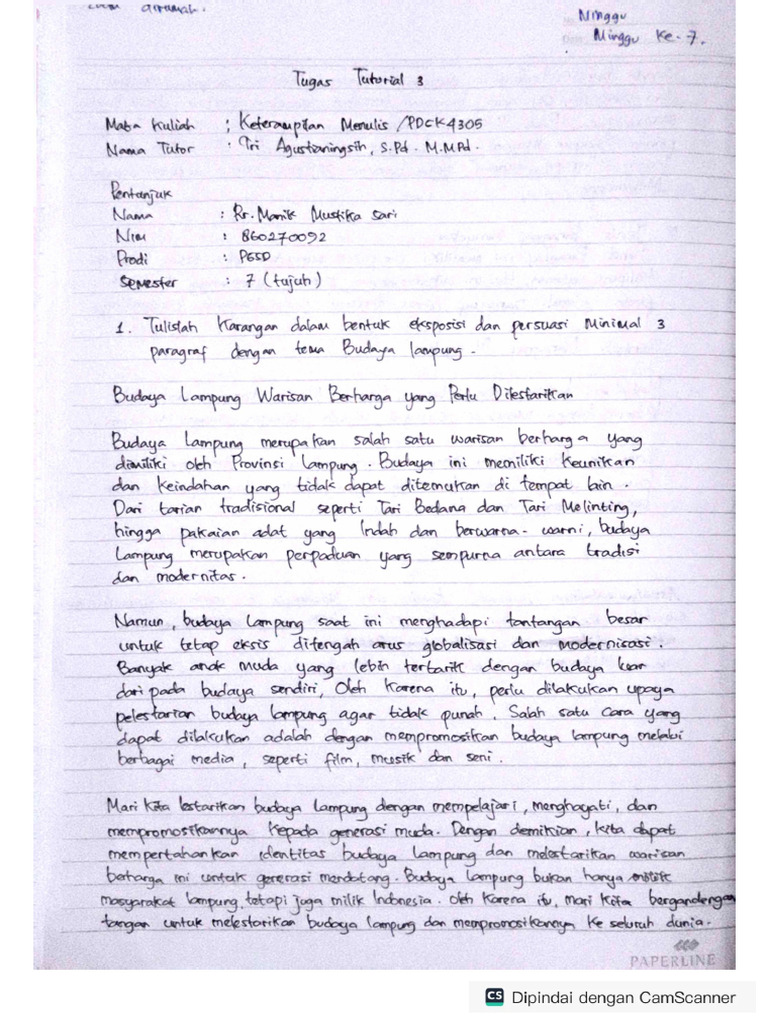 Ninggu
Minggu Ke-7.
Tugas Tutorial 3
Mata Kuliah : Keterampilan Menulis /PDCK4305
Nama Tutor : Tri Agustianingsih, S.Pd. M.MPd.
Pentanjuk
Nama : Rr. Manik Mustika Sari
Nim : 860270092
Prodi : PGSD
Semester : 7 (tujuh)
1. Tulislah Karangan dalam bentuk eksposisi dan persuasi Minimal 3
paragraf dengan tema Budaya lampung.
Budaya Lampung Warisan Berharga yang Perlu Dilestarikan
Budaya Lampung merupakan salah satu warisan berharga yang
dimiliki oleh Provinsi Lampung. Budaya ini memiliki keunikan
dan keindahan yang tidak dapat ditemukan di tempat lain.
Dari tarian tradisional seperti Tari Bedana dan Tari Melinting,
hingga pakaian adat yang Indah dan berwarna-warni, budaya
Lampung merupakan perpaduan yang sempurna antara tradisi
dan modernitas.
Namun, budaya Lampung saat ini menghadapi tantangan besar
untuk tetap eksis ditengah arus globalisasi dan modernisasi.
Banyak anak muda yang lebih tertarik dengan budaya luar
daripada budaya sendiri, Oleh Karena itu, perlu dilakukan upaya
pelestarian budaya lampung agar tidak punah. Salah satu Cara yang
dapat dilakukan adalah dengan mempromosikan budaya lampung melalui
berbagai media, seperti film, musik dan seni.
Mari Kita lestarikan budaya Lampung dengan mempelajari, menghayati, dan
mempromosikannya Kepada generasi muda. Dengan demikian, Kita dapat
mempertahankan identitas budaya Lampung dan melestarikan warisan
berharga ini untuk generasi mendatang. Budaya Lampung bukan hanya milik
masyarakat lampung, tetapi juga milik Indonesia. Oleh Karena itu, mari Kita bergandengan
tangan untuk melestarikan budaya Lampung dan mempromosikannya Ke seluruh dunia.
PAPERLINE
CS Dipindai dengan CamScanner